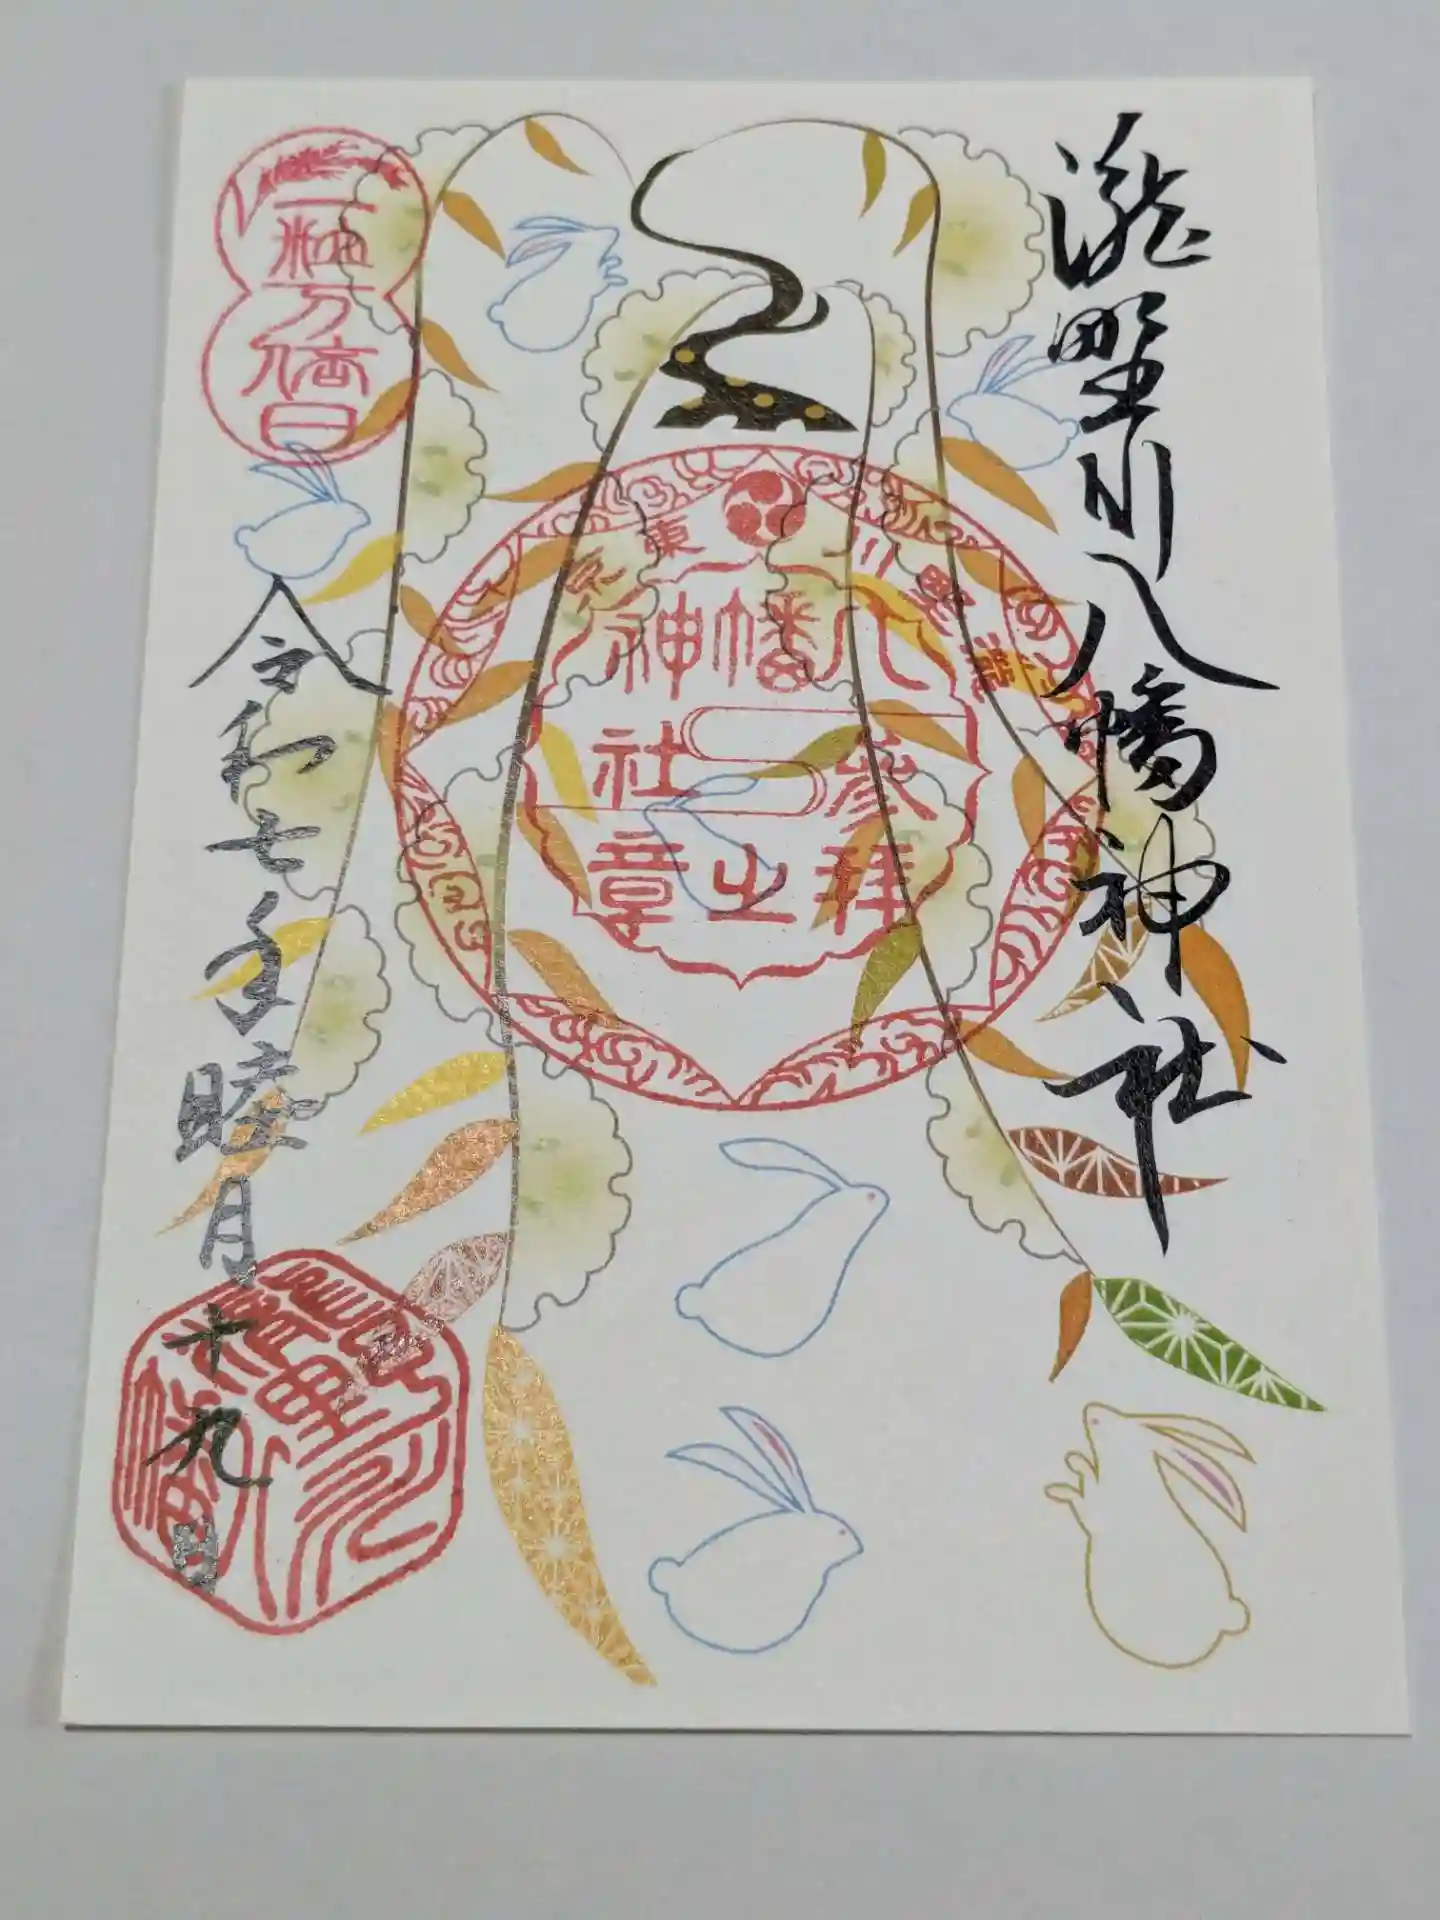 瀧野川八幡神社
東京
瀧野川
八幡神社
参拝之章
一粒万倍日
令和七年睦月十九日